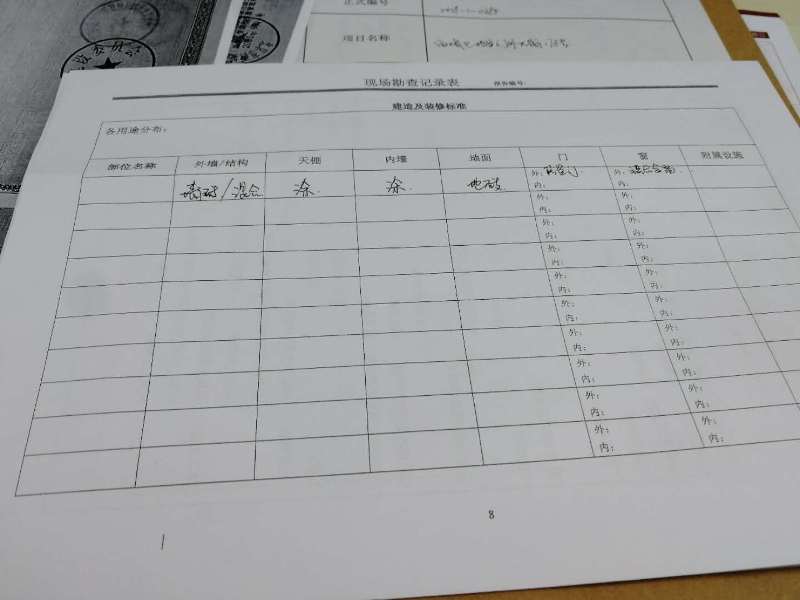 正式编号
项目名称
现场勘查记录表 报告编号:
建造及装修标准
各用途分布:
部位名称 外墙/结构 天棚 内墙 地面 门 窗 附属设施
墙砖/混合 涂 涂 地砖 外: 防盗门 外: 铝合金
内: 内:
外: 外:
内: 内:
外: 外:
内: 内:
外: 外:
内: 内:
外: 外:
内: 内:
外: 外:
内: 内:
外: 外:
内: 内:
外: 外:
内: 内:
外: 外:
内: 内:
外: 外:
内: 内:
8